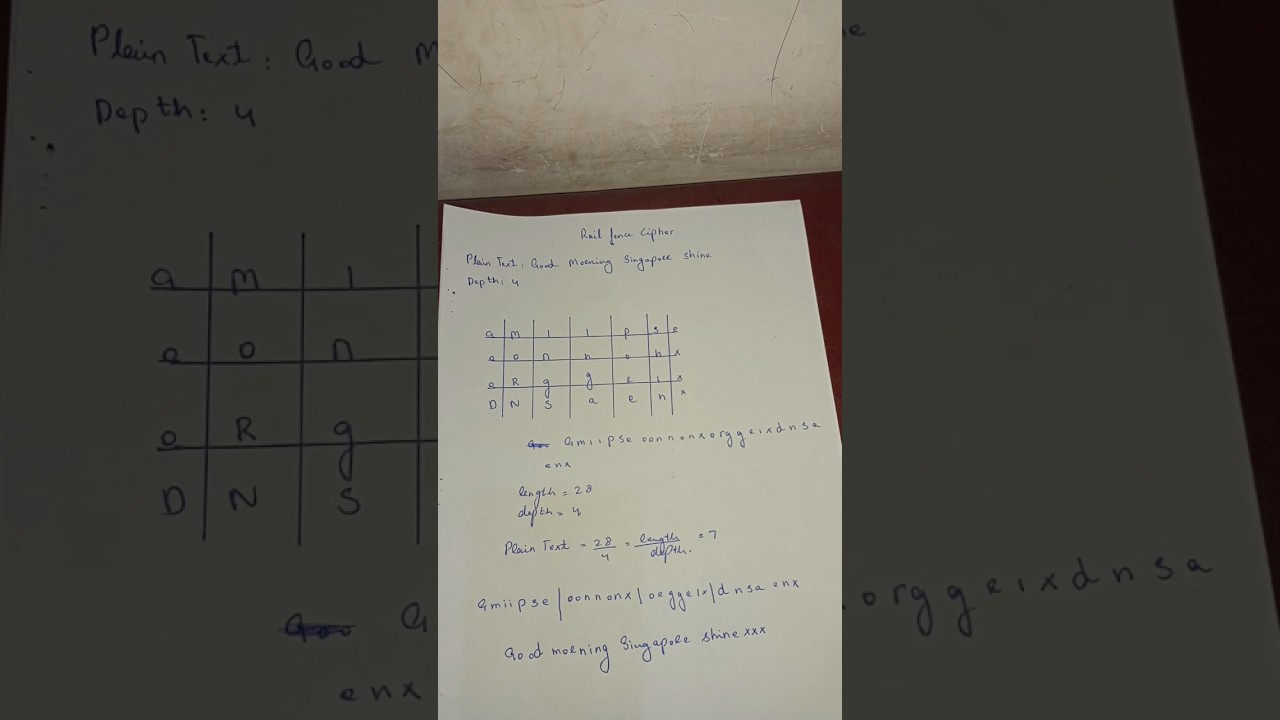 Rail fence Cipher
Plain Text: Good Morning Singapore Shine
Depth: 4
G M i i p s e
o o n n o h x
o R g g r i x
D N S a e n x
Gmiipse oonnohxorggrixdnsa
enx
length = 28
depth = 4
Plain Text = 28/4 = length/depth. = 7
Gmiipse | oonnonx | orggrix | dnsa enx
Good morning Singapore shine xxx